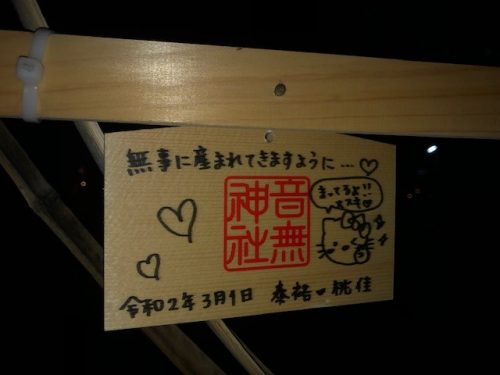 無事に産まれてきますように…♡
まってるよ!!
大スキ♡
音無
神社
令和2年3月9日 泰裕♡桃佳